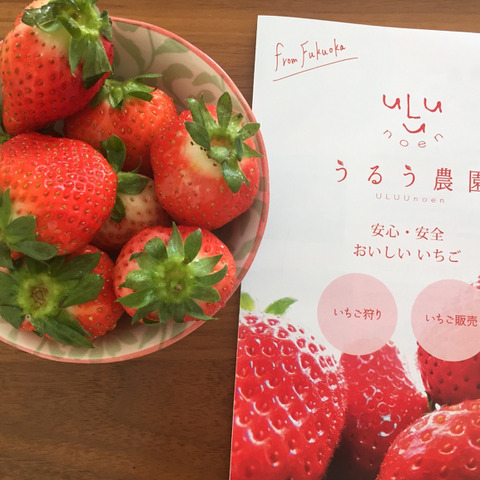 from Fukuoka
uLu
u
noen
うるう農園
ULUUnoen
安心・安全
おいしい いちご
いちご狩り
いちご販売